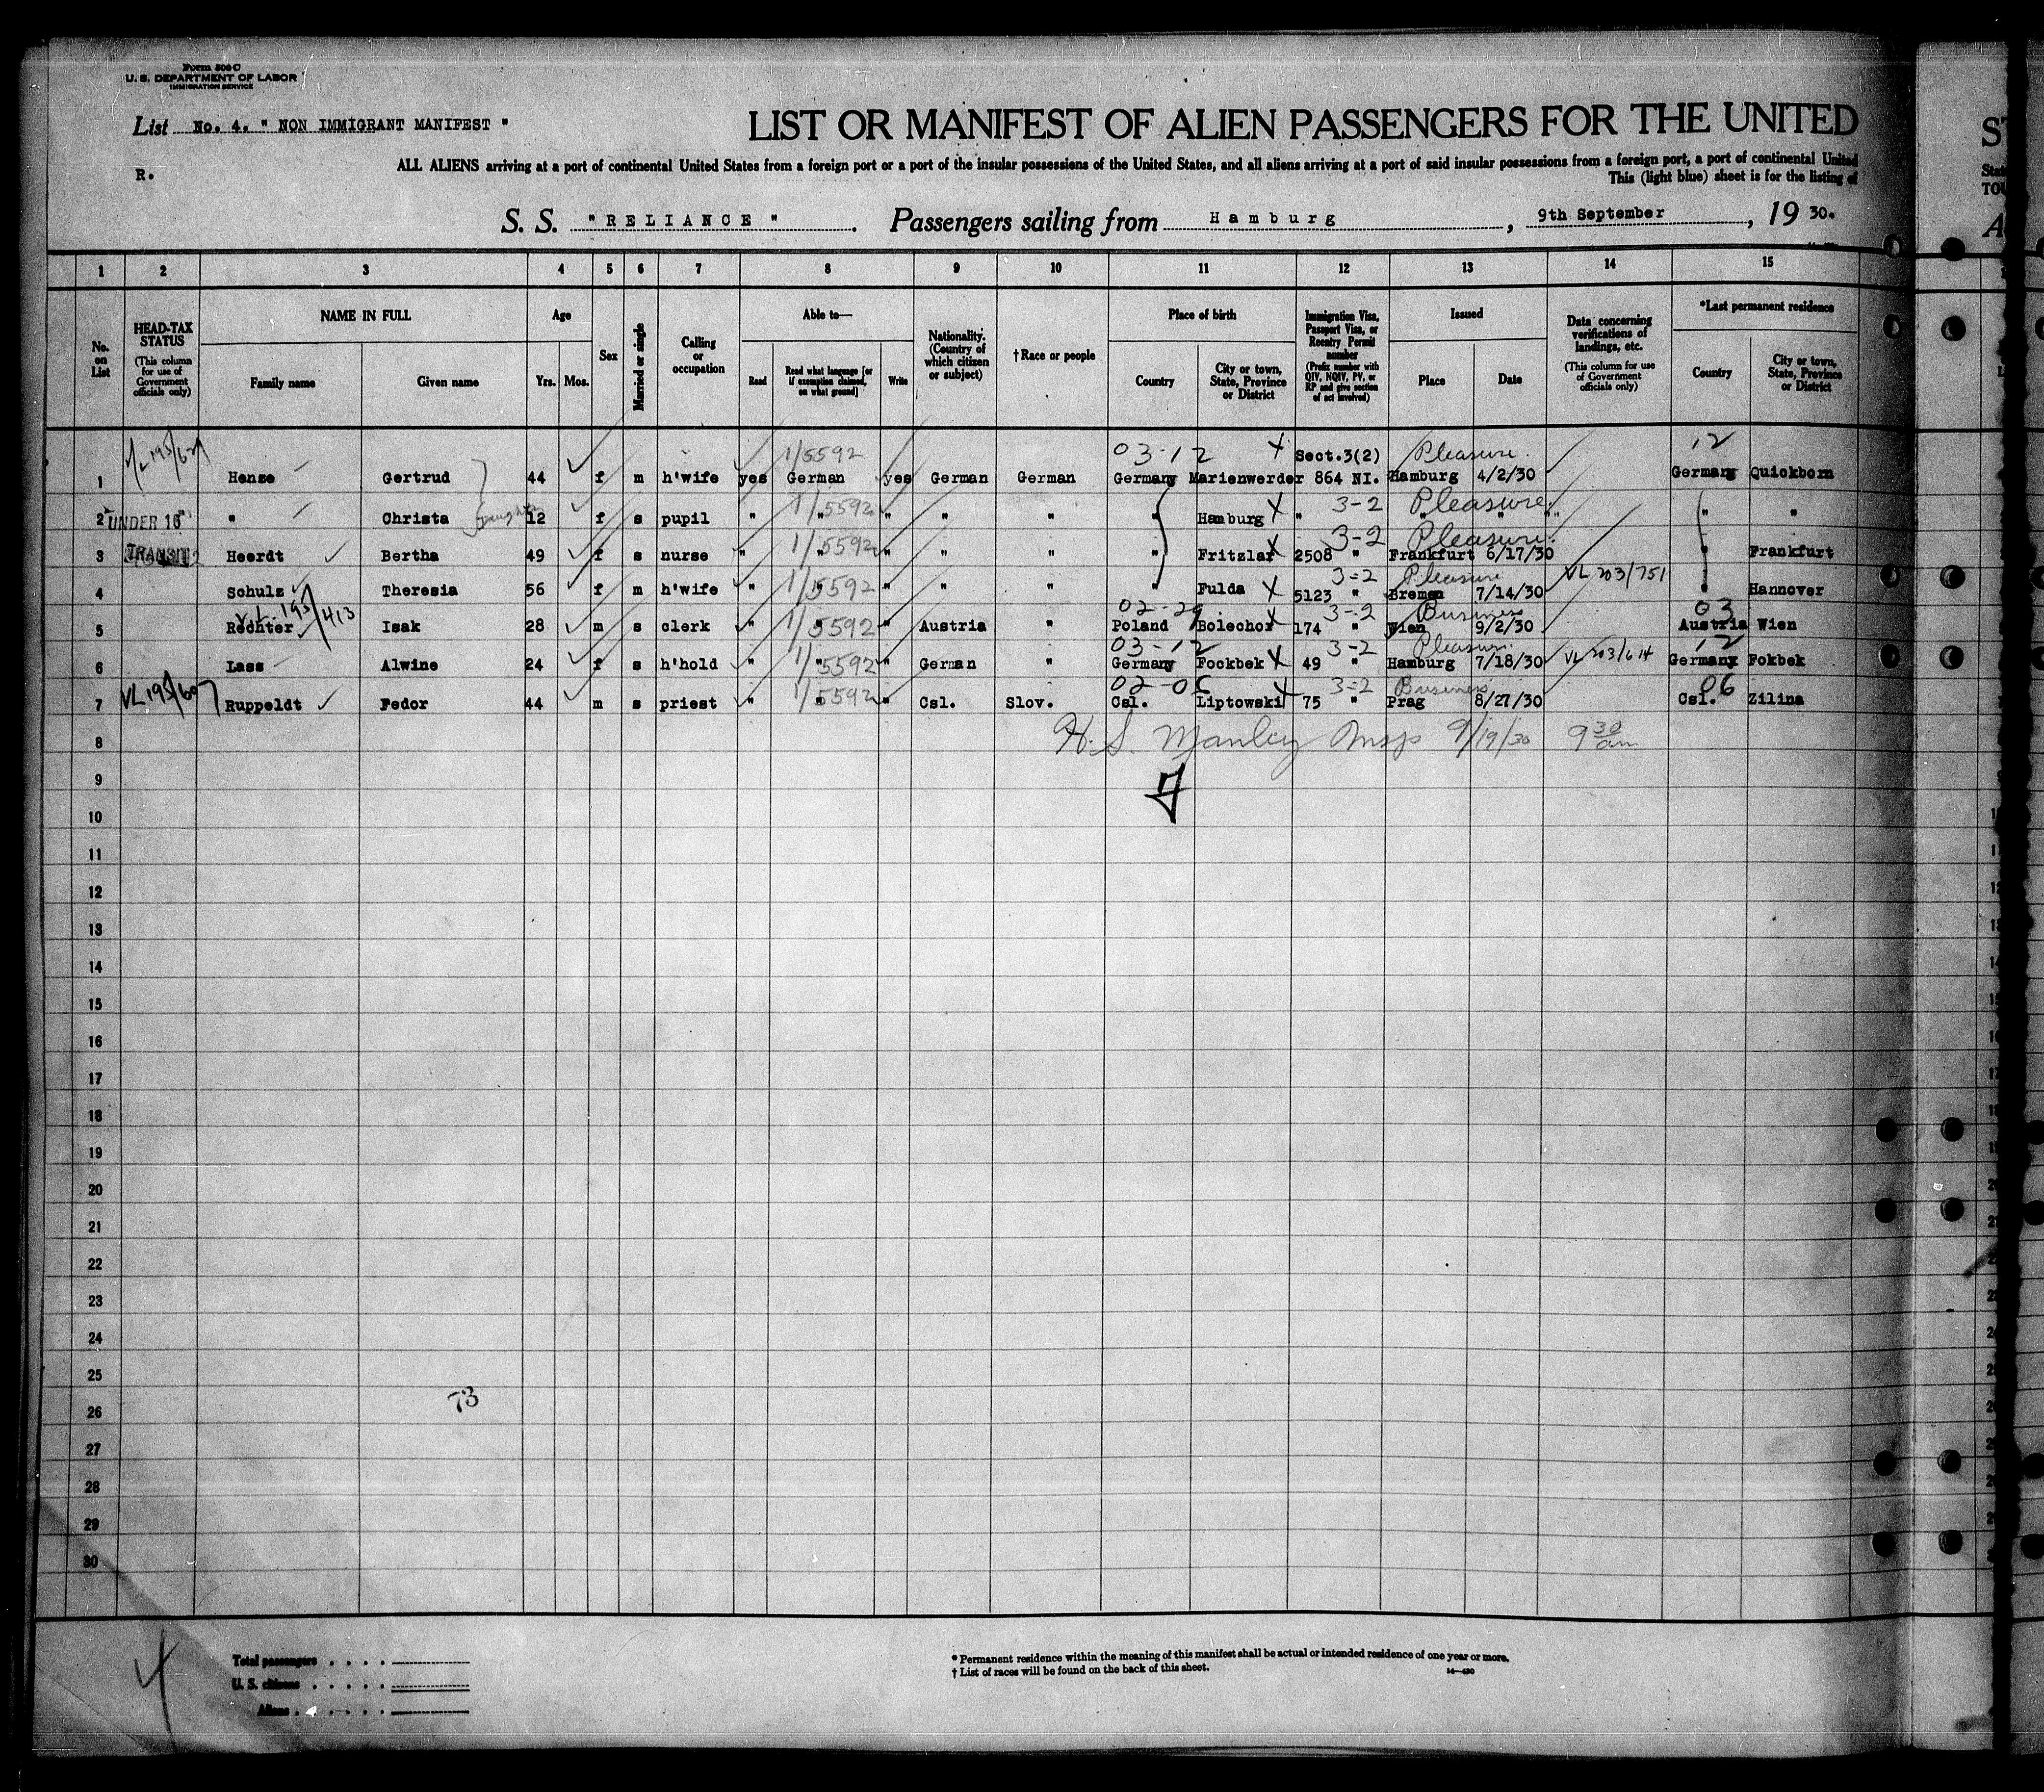 Form 500 C
U. S. DEPARTMENT OF LABOR
IMMIGRATION SERVICE
List No. 4. " NON IMMIGRANT MANIFEST "
LIST OR MANIFEST OF ALIEN PASSENGERS FOR THE UNITED
R.
ALL ALIENS arriving at a port of continental United States from a foreign port or a port of the insular possessions of the United States, and all aliens arriving at a port of said insular possessions from a foreign port, a port of continental United
This (light blue) sheet is for the listing of
S. S. " RELIANCE ". Passengers sailing from Hamburg, 9th September, 1930.
1 2 3 4 5 6 7 8 9 10 11 12 13 14 15
No. on List
HEAD-TAX STATUS (This column for use of Government officials only)
NAME IN FULL Family name Given name
Age Yrs. Mos.
Sex
Married or single
Calling or occupation
Able to— Read Read what language [or if exemption claimed, on what ground] Write
Nationality. (Country of which citizen or subject)
† Race or people
Place of birth Country City or town, State, Province or District
Immigration Visa, Passport Visa, or Reentry Permit number (Prefix number with QIV, NQIV, PV, or RP and give section of act involved)
Issued Place Date
Data concerning verifications of landings, etc. (This column for use of Government officials only)
*Last permanent residence Country City or town, State, Province or District
1/5592 03-12 X Sect.3(2) Pleasure. 12
1 Hense Gertrud 44 f m h'wife yes German yes German German Germany Marienwerder 864 NI. Hamburg 4/2/30 Germany Quickborn
1/5592 3-2 Pleasure
2 UNDER 16 " Christa daughter 12 f s pupil " " " " " " Hamburg X " " " " " "
1/5592 3-2 Pleasure
3 TRANSIT Heerdt Bertha 49 f s nurse " " " " " " Fritzlar X 2508 " Frankfurt 6/17/30 " Frankfurt
1/5592 3-2 Pleasure VL 203/751
4 Schulz Theresia 56 f m h'wife " " " " " Fulda X 5123 " Bremen 7/14/30 " Hannover
V.L. 195/413 1/5592 02-29 3-2 Business 03
5 Rechter Isak 28 m s clerk " " Austria " Poland Bolechor X 174 " Wien 9/2/30 Austria Wien
1/5592 03-12 3-2 Pleasure VL 203/614 12
6 Lass Alwine 24 f s h'hold " " " German " Germany Fockbek X 49 " Hamburg 7/18/30 Germany Fokbek
1/5592 3-2 Business 06
7 Ruppeldt Fedor 44 m s priest " " " Csl. Slov. Csl. Liptowski 75 " Prag 8/27/30 Csl. Zilina
8 H. S. Manley Insp 9/19/30 9 30 am
9
10
11
12
13
14
15
16
17
18
19
20
21
22
23
24
25
73
26
27
28
29
30
4
Total passengers . . . .
U. S. citizens . . . . .
Aliens . . . . . .
* Permanent residence within the meaning of this manifest shall be actual or intended residence of one year or more.
† List of races will be found on the back of this sheet.
14—430